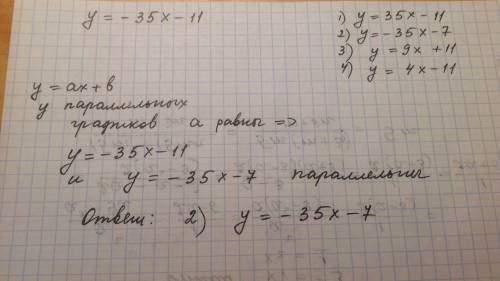 y = -35x - 11
1) y = 35x - 11
2) y = -35x - 7
3) y = 9x + 11
4) y = 4x - 11
y = ax + b
у параллельных
графиков a равны =>
y = -35x - 11
и y = -35x - 7 параллельны
Ответ: 2) y = -35x - 7